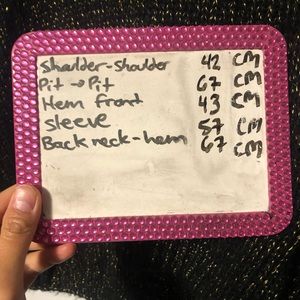 Shoulder-shoulder 42 CM
Pit → Pit 67 CM
Hem front 43 CM
sleeve 57 CM
Back neck-hem 67 CM